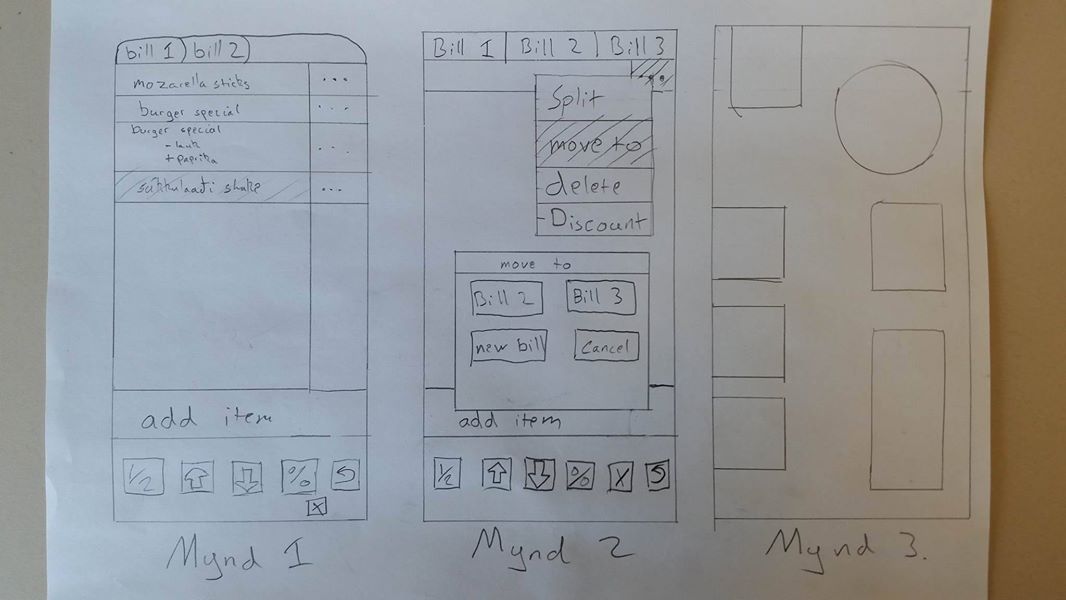 bill 1 bill 2
mozarella sticks ...
burger special ...
burger special
- lauk
+ paprika
...
súkkulaði shake ...
add item
1/2 %
X
Mynd 1
Bill 1 Bill 2 Bill 3
Split
move to
delete
Discount
move to
Bill 2 Bill 3
new bill Cancel
add item
1/2 % X
Mynd 2
Mynd 3.